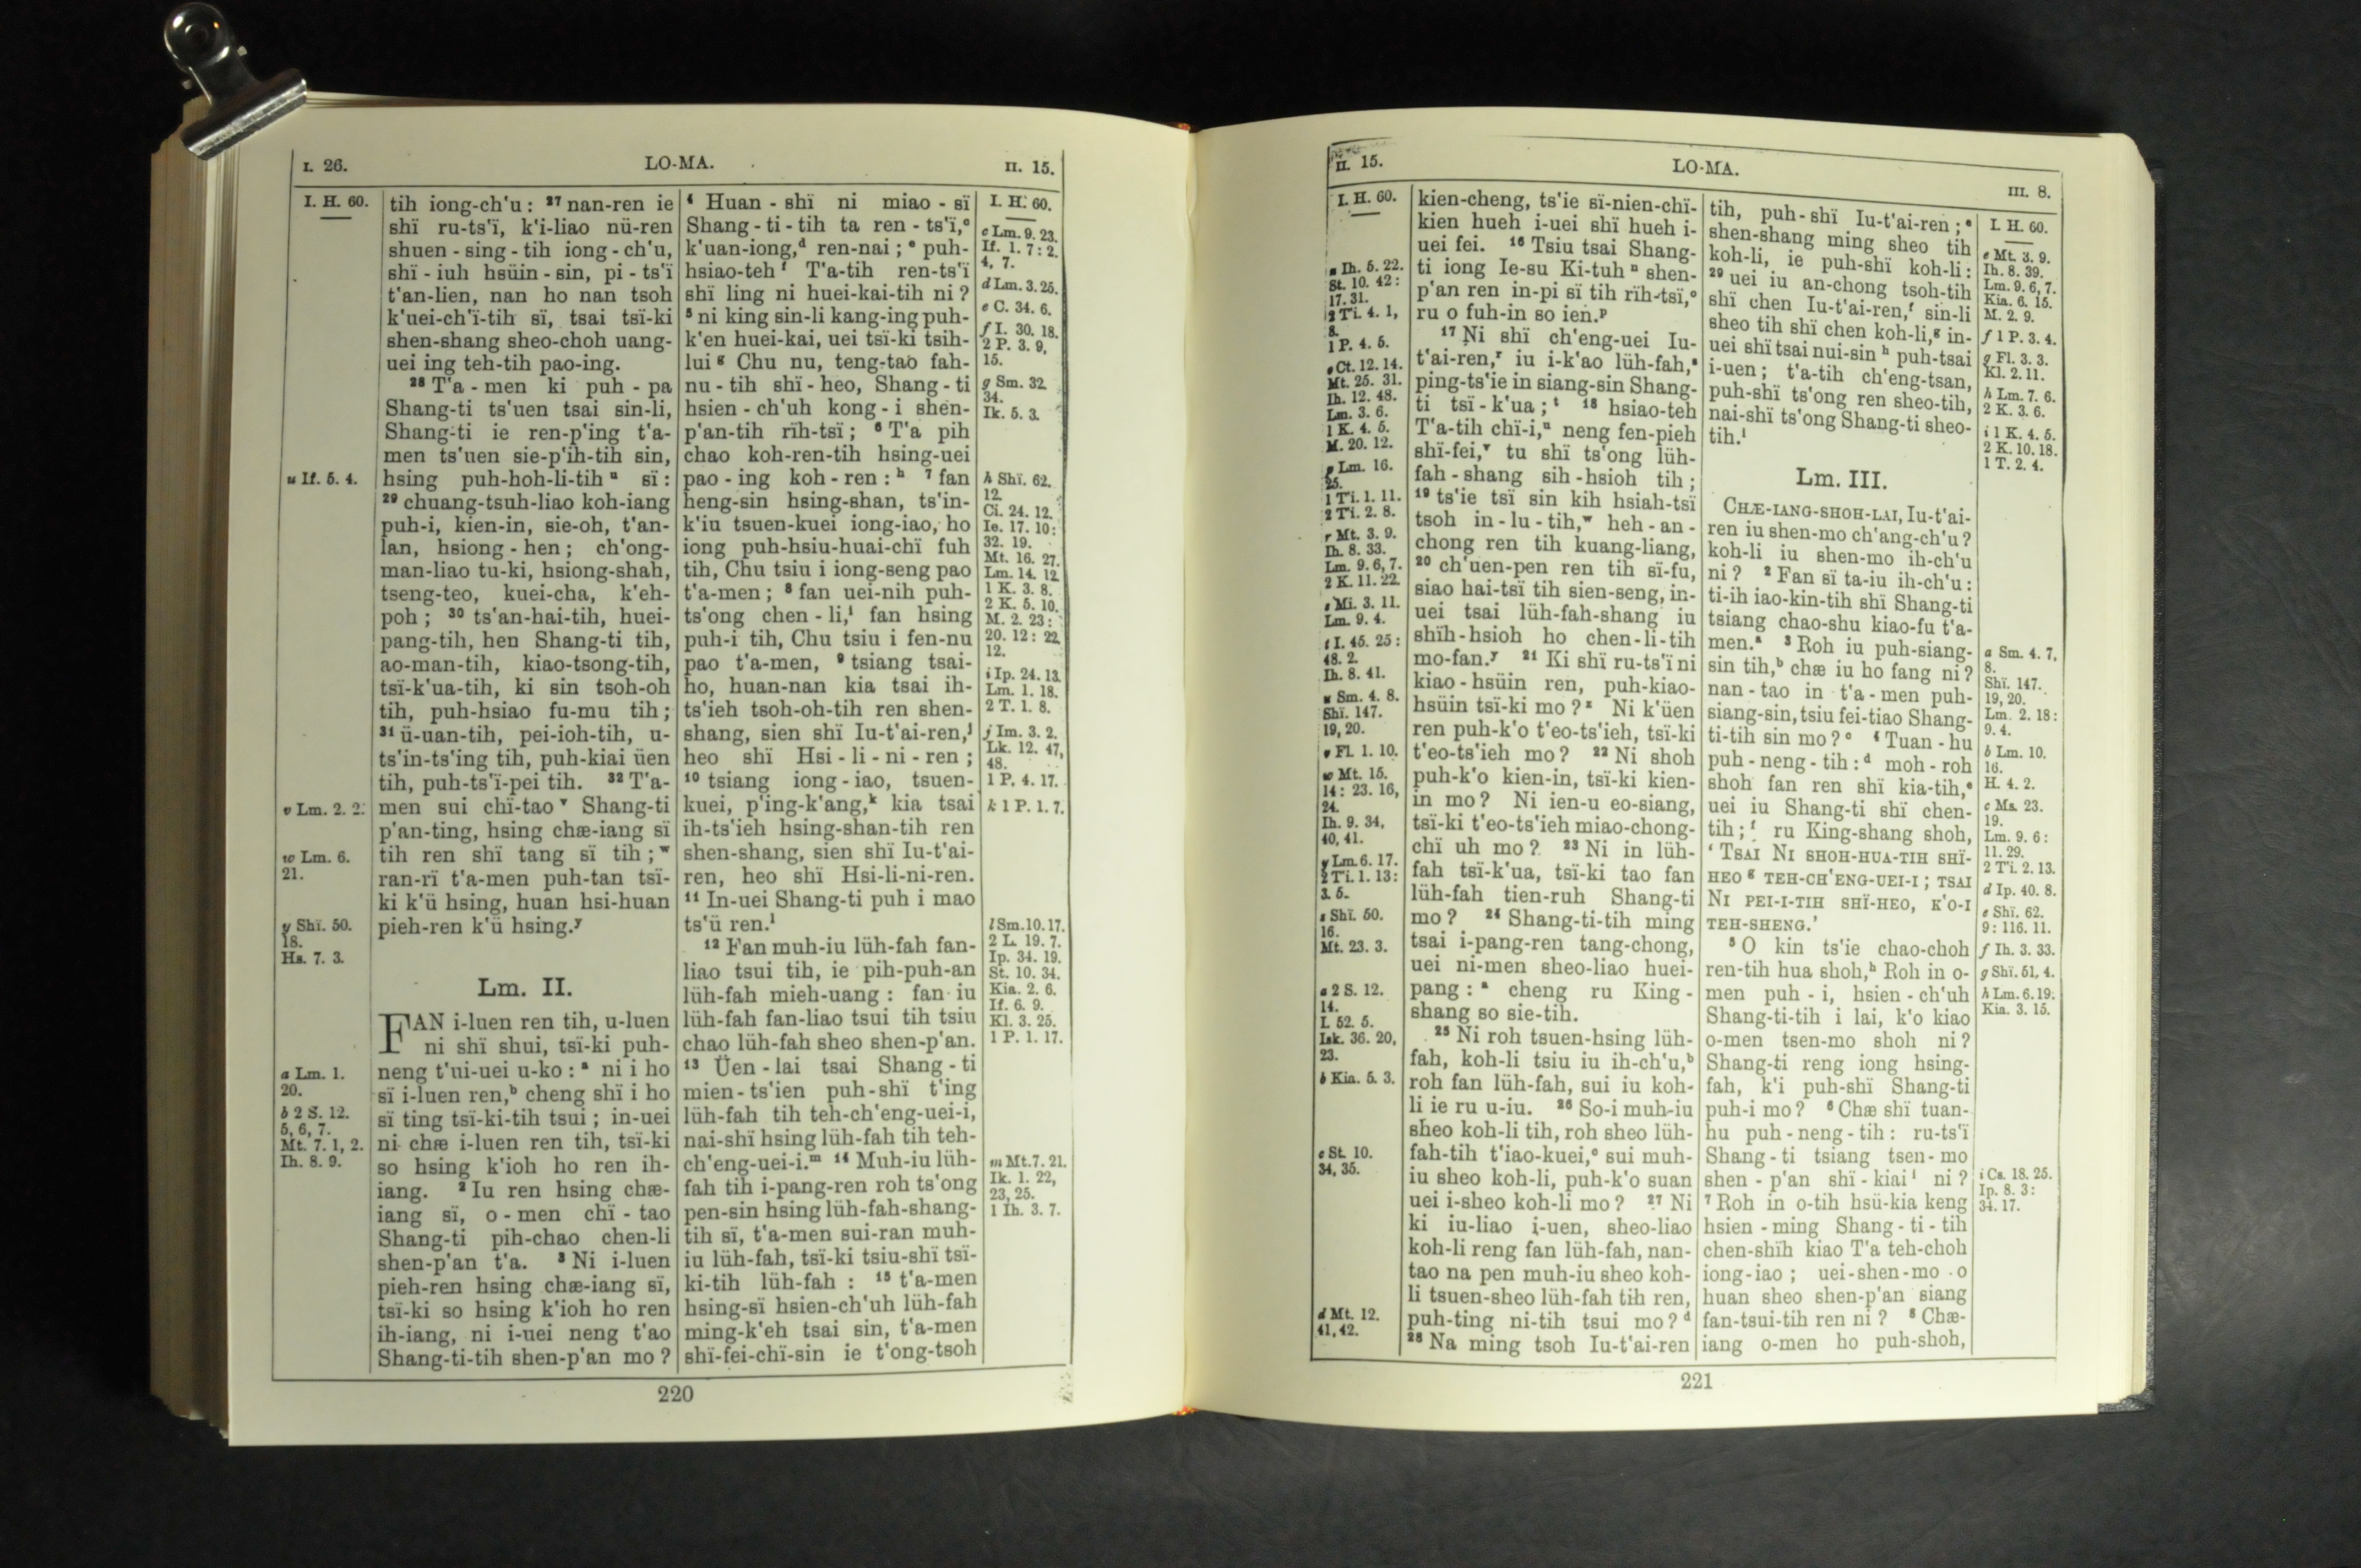 I. 26.
LO-MA.
II. 15.
I. H. 60.
u If. 5. 4.
v Lm. 2. 2.
w Lm. 6.
21.
y Shï. 50.
18.
Hs. 7. 3.
a Lm. 1.
20.
b 2 S. 12.
5, 6, 7.
Mt. 7. 1, 2.
Ih. 8. 9.
tih iong-ch'u: 27 nan-ren ie
shï ru-ts'ï, k'i-liao nü-ren
shuen-sing-tih iong-ch'u,
shï-iuh hsüin-sin, pi-ts'ï
t'an-lien, nan ho nan tsoh
k'uei-ch'ï-tih sï, tsai tsï-ki
shen-shang sheo-choh uang-
uei ing teh-tih pao-ing.
28 T'a-men ki puh-pa
Shang-ti ts'uen tsai sin-li,
Shang-ti ie ren-p'ing t'a-
men ts'uen sie-p'ih-tih sin,
hsing puh-hoh-li-tih u sï:
29 chuang-tsuh-liao koh-iang
puh-i, kien-in, sie-oh, t'an-
lan, hsiong-hen; ch'ong-
man-liao tu-ki, hsiong-shah,
tseng-teo, kuei-cha, k'eh-
poh; 30 ts'an-hai-tih, huei-
pang-tih, hen Shang-ti tih,
ao-man-tih, kiao-tsong-tih,
tsï-k'ua-tih, ki sin tsoh-oh
tih, puh-hsiao fu-mu tih;
31 ü-uan-tih, pei-ioh-tih, u-
ts'in-ts'ing tih, puh-kiai üen
tih, puh-ts'ï-pei tih. 32 T'a-
men sui chï-tao v Shang-ti
p'an-ting, hsing chæ-iang sï
tih ren shï tang sï tih; w
ran-rï t'a-men puh-tan tsï-
ki k'ü hsing, huan hsi-huan
pieh-ren k'ü hsing. y
Lm. II.
FAN i-luen ren tih, u-luen
ni shï shui, tsï-ki puh-
neng t'ui-uei u-ko: a ni i ho
sï i-luen ren, b cheng shï i ho
sï ting tsï-ki-tih tsui; in-uei
ni chæ i-luen ren tih, tsï-ki
so hsing k'ioh ho ren ih-
iang. 2 Iu ren hsing chæ-
iang sï, o-men chï-tao
Shang-ti pih-chao chen-li
shen-p'an t'a. 3 Ni i-luen
pieh-ren hsing chæ-iang sï,
tsï-ki so hsing k'ioh ho ren
ih-iang, ni i-uei neng t'ao
Shang-ti-tih shen-p'an mo?
4 Huan-shï ni miao-sï
Shang-ti-tih ta ren-ts'ï, c
k'uan-iong, d ren-nai; e puh-
hsiao-teh f T'a-tih ren-ts'ï
shï ling ni huei-kai-tih ni?
5 ni king sin-li kang-ing puh-
k'en huei-kai, uei tsï-ki tsih-
lui g Chu nu, teng-tao fah-
nu-tih shï-heo, Shang-ti
hsien-ch'uh kong-i shen-
p'an-tih rïh-tsï; 6 T'a pih
chao koh-ren-tih hsing-uei
pao-ing koh-ren: h 7 fan
heng-sin hsing-shan, ts'in-
k'iu tsuen-kuei iong-iao, ho
iong puh-hsiu-huai-chï fuh
tih, Chu tsiu i iong-seng pao
t'a-men; 8 fan uei-nih puh-
ts'ong chen-li, i fan hsing
puh-i tih, Chu tsiu i fen-nu
pao t'a-men, 9 tsiang tsai-
ho, huan-nan kia tsai ih-
ts'ieh tsoh-oh-tih ren shen-
shang, sien shï Iu-t'ai-ren, j
heo shï Hsi-li-ni-ren;
10 tsiang iong-iao, tsuen-
kuei, p'ing-k'ang, k kia tsai
ih-ts'ieh hsing-shan-tih ren
shen-shang, sien shï Iu-t'ai-
ren, heo shï Hsi-li-ni-ren.
11 In-uei Shang-ti puh i mao
ts'ü ren. l
12 Fan muh-iu lüh-fah fan-
liao tsui tih, ie pih-puh-an
lüh-fah mieh-uang: fan iu
lüh-fah fan-liao tsui tih tsiu
chao lüh-fah sheo shen-p'an.
13 Üen-lai tsai Shang-ti
mien-ts'ien puh-shï t'ing
lüh-fah tih teh-ch'eng-uei-i,
nai-shï hsing lüh-fah tih teh-
ch'eng-uei-i. m 14 Muh-iu lüh-
fah tih i-pang-ren roh ts'ong
pen-sin hsing lüh-fah-shang-
tih sï, t'a-men sui-ran muh-
iu lüh-fah, tsï-ki tsiu-shï tsï-
ki-tih lüh-fah: 15 t'a-men
hsing-sï hsien-ch'uh lüh-fah
ming-k'eh tsai sin, t'a-men
shï-fei-chï-sin ie t'ong-tsoh
I. H. 60.
c Lm. 9. 23.
If. 1. 7: 2.
4, 7.
d Lm. 3. 25.
e C. 34. 6.
f I. 30. 18.
2 P. 3. 9,
15.
g Sm. 32.
34.
Ik. 5. 3.
h Shï. 62.
12.
Ci. 24. 12.
Ie. 17. 10:
32. 19.
Mt. 16. 27.
Lm. 14. 12.
1 K. 3. 8.
2 K. 5. 10.
M. 2. 23:
20. 12: 22.
12.
i Ip. 24. 13.
Lm. 1. 18.
2 T. 1. 8.
j Im. 3. 2.
Lk. 12. 47,
48.
1 P. 4. 17.
k 1 P. 1. 7.
l Sm. 10. 17.
2 L. 19. 7.
Ip. 34. 19.
St. 10. 34.
Kia. 2. 6.
If. 6. 9.
Kl. 3. 25.
1 P. 1. 17.
m Mt. 7. 21.
Ik. 1. 22,
23, 25.
1 Ih. 3. 7.
220
II. 15.
LO-MA.
III. 8.
I. H. 60.
n Ih. 5. 22.
St. 10. 42:
17. 31.
2 Ti. 4. 1,
8.
1 P. 4. 5.
o Ct. 12. 14.
Mt. 25. 31.
Ih. 12. 48.
Lm. 3. 6.
1 K. 4. 5.
M. 20. 12.
p Lm. 16.
25.
1 Ti. 1. 11.
2 Ti. 2. 8.
r Mt. 3. 9.
Ih. 8. 33.
Lm. 9. 6, 7.
2 K. 11. 22.
s Mi. 3. 11.
Lm. 9. 4.
t I. 45. 25:
48. 2.
Ih. 8. 41.
u Sm. 4. 8.
Shï. 147.
19, 20.
v Fl. 1. 10.
w Mt. 15.
14: 23. 16,
24.
Ih. 9. 34,
40, 41.
y Lm. 6. 17.
2 Ti. 1. 13:
3. 5.
z Shï. 50.
16.
Mt. 23. 3.
a 2 S. 12.
14.
I. 52. 5.
Isk. 36. 20,
23.
b Kia. 5. 3.
c St. 10.
34, 35.
d Mt. 12.
41, 42.
kien-cheng, ts'ie sï-nien-chï-
kien hueh i-uei shï hueh i-
uei fei. 16 Tsiu tsai Shang-
ti iong Ie-su Ki-tuh n shen-
p'an ren in-pi sï tih rïh-tsï, o
ru o fuh-in so ien. p
17 Ni shï ch'eng-uei Iu-
t'ai-ren, r iu i-k'ao lüh-fah, s
ping-ts'ie in siang-sin Shang-
ti tsï-k'ua; t 18 hsiao-teh
T'a-tih chï-i, u neng fen-pieh
shï-fei, v tu shï ts'ong lüh-
fah-shang sih-hsioh tih;
19 ts'ie tsï sin kih hsiah-tsï
tsoh in-lu-tih, w heh-an-
chong ren tih kuang-liang,
20 ch'uen-pen ren tih sï-fu,
siao hai-tsï tih sien-seng, in-
uei tsai lüh-fah-shang iu
shïh-hsioh ho chen-li-tih
mo-fan. y 21 Ki shï ru-ts'ï ni
kiao-hsüin ren, puh-kiao-
hsüin tsï-ki mo? z Ni k'üen
ren puh-k'o t'eo-ts'ieh, tsï-ki
t'eo-ts'ieh mo? 22 Ni shoh
puh-k'o kien-in, tsï-ki kien-
in mo? Ni ien-u eo-siang,
tsï-ki t'eo-ts'ieh miao-chong-
chï uh mo? 23 Ni in lüh-
fah tsï-k'ua, tsï-ki tao fan
lüh-fah tien-ruh Shang-ti
mo? 24 Shang-ti-tih ming
tsai i-pang-ren tang-chong,
uei ni-men sheo-liao huei-
pang: a cheng ru King-
shang so sie-tih.
25 Ni roh tsuen-hsing lüh-
fah, koh-li tsiu iu ih-ch'u, b
roh fan lüh-fah, sui iu koh-
li ie ru u-iu. 26 So-i muh-iu
sheo koh-li tih, roh sheo lüh-
fah-tih t'iao-kuei, c sui muh-
iu sheo koh-li, puh-k'o suan
uei i-sheo koh-li mo? 27 Ni
ki iu-liao i-uen, sheo-liao
koh-li reng fan lüh-fah, nan-
tao na pen muh-iu sheo koh-
li tsuen-sheo lüh-fah tih ren,
puh-ting ni-tih tsui mo? d
28 Na ming tsoh Iu-t'ai-ren
tih, puh-shï Iu-t'ai-ren; e
shen-shang ming sheo tih
koh-li, ie puh-shï koh-li:
29 uei iu an-chong tsoh-tih
shï chen Iu-t'ai-ren, f sin-li
sheo tih shï chen koh-li, g in-
uei shï tsai nui-sin h puh-tsai
i-uen; t'a-tih ch'eng-tsan,
puh-shï ts'ong ren sheo-tih,
nai-shï ts'ong Shang-ti sheo-
tih. i
Lm. III.
CHÆ-IANG-SHOH-LAI, Iu-t'ai-
ren iu shen-mo ch'ang-ch'u?
koh-li iu shen-mo ih-ch'u
ni? 2 Fan sï ta-iu ih-ch'u:
ti-ih iao-kin-tih shï Shang-ti
tsiang chao-shu kiao-fu t'a-
men. a 3 Roh iu puh-siang-
sin tih, b chæ iu ho fang ni?
nan-tao in t'a-men puh-
siang-sin, tsiu fei-tiao Shang-
ti-tih sin mo? c 4 Tuan-hu
puh-neng-tih: d moh-roh
shoh fan ren shï kia-tih, e
uei iu Shang-ti shï chen-
tih; f ru King-shang shoh,
'TSAI NI SHOH-HUA-TIH SHÏ-
HEO g TEH-CH'ENG-UEI-I; TSAI
NI PEI-I-TIH SHÏ-HEO, K'O-I
TEH-SHENG.'
5 O kin ts'ie chao-choh
ren-tih hua shoh, h Roh in o-
men puh-i, hsien-ch'uh
Shang-ti-tih i lai, k'o kiao
o-men tsen-mo shoh ni?
Shang-ti reng iong hsing-
fah, k'i puh-shï Shang-ti
puh-i mo? 6 Chæ shï tuan-
hu puh-neng-tih: ru-ts'ï
Shang-ti tsiang tsen-mo
shen-p'an shï-kiai i ni?
7 Roh in o-tih hsü-kia keng
hsien-ming Shang-ti-tih
chen-shïh kiao T'a teh-choh
iong-iao; uei-shen-mo o
huan sheo shen-p'an siang
fan-tsui-tih ren ni? 8 Chæ-
iang o-men ho puh-shoh,
I. H. 60.
e Mt. 3. 9.
Ih. 8. 39.
Lm. 9. 6, 7.
Kia. 6. 15.
M. 2. 9.
f 1 P. 3. 4.
g Fl. 3. 3.
Kl. 2. 11.
h Lm. 7. 6.
2 K. 3. 6.
i 1 K. 4. 5.
2 K. 10. 18.
1 T. 2. 4.
a Sm. 4. 7,
8.
Shï. 147.
19, 20.
Lm. 2. 18:
9. 4.
b Lm. 10.
16.
H. 4. 2.
c Ms. 23.
19.
Lm. 9. 6:
11. 29.
2 Ti. 2. 13.
d Ip. 40. 8.
e Shï. 62.
9: 116. 11.
f Ih. 3. 33.
g Shï. 51, 4.
h Lm. 6. 19.
Kia. 3. 15.
i Cs. 18. 25.
Ip. 8. 3:
34. 17.
221